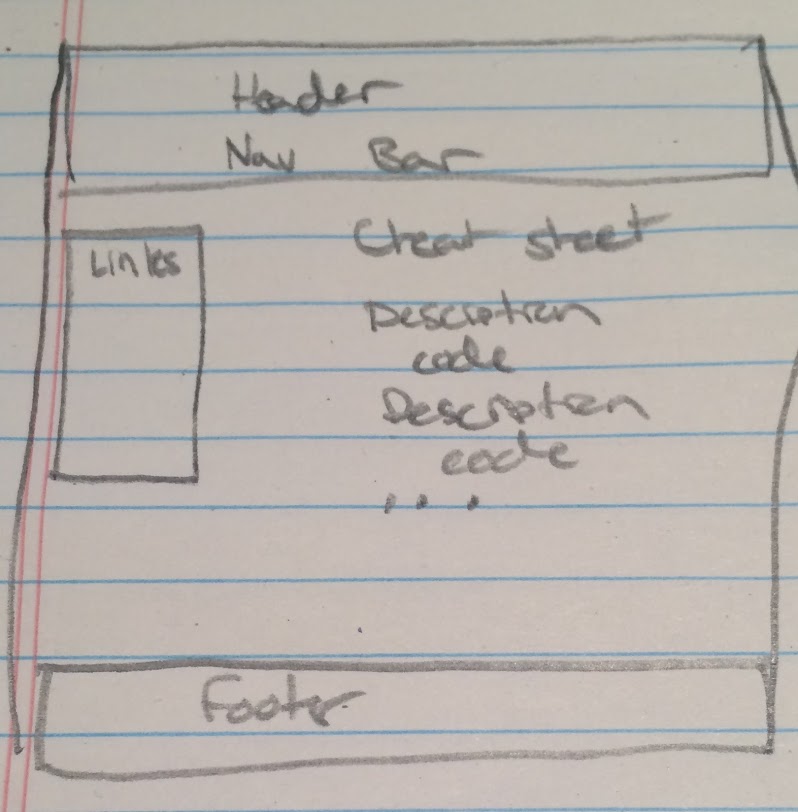 Header
Nav Bar
Links
Cheat sheet
Description
code
Description
code
....
Footer